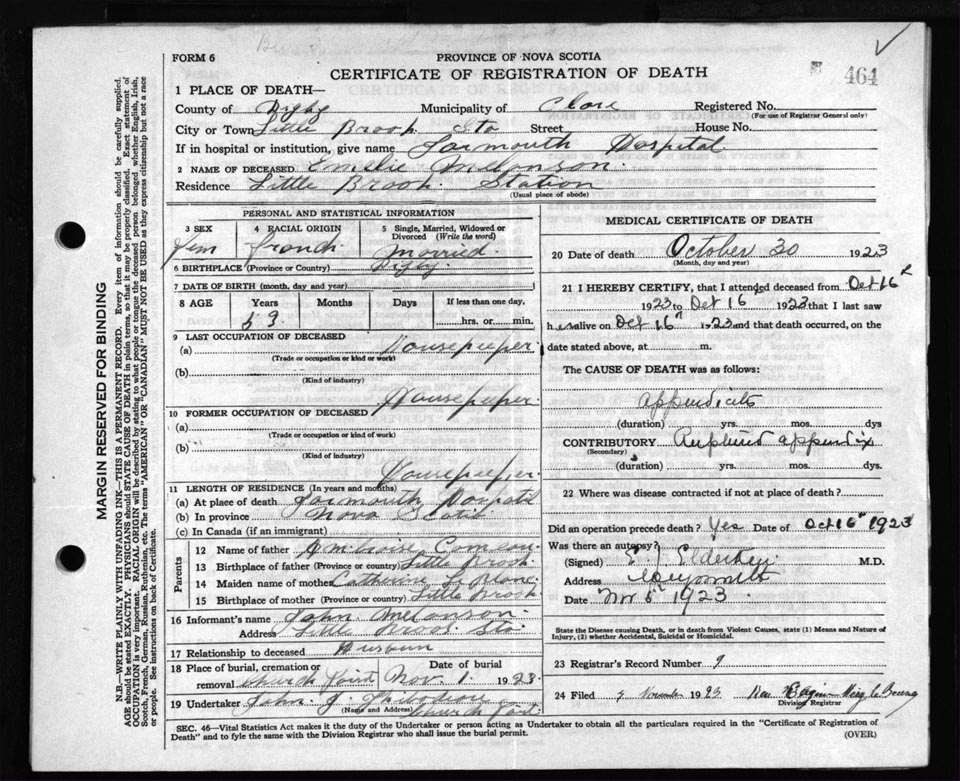 FORM 6
PROVINCE OF NOVA SCOTIA
CERTIFICATE OF REGISTRATION OF DEATH
464
1 PLACE OF DEATH—
County of Digby Municipality of Clare Registered No.
(For use of Registrar General only)
City or Town Little Brook Sta Street House No.
If in hospital or institution, give name Yarmouth Hospital
2 NAME OF DECEASED Emelie Melanson
Residence Little Brook Station
(Usual place of abode)
PERSONAL AND STATISTICAL INFORMATION
3 SEX 4 RACIAL ORIGIN 5 Single, Married, Widowed or Divorced (Write the word)
Fem French Married
6 BIRTHPLACE (Province or Country) Digby
7 DATE OF BIRTH (month, day and year)
8 AGE Years Months Days If less than one day,
59 hrs. or min.
9 LAST OCCUPATION OF DECEASED
(a) Housekeeper
(Trade or occupation or kind or work)
(b)
(Kind of industry)
Housekeeper
10 FORMER OCCUPATION OF DECEASED
(a)
(Trade or occupation or kind of work)
(b)
(Kind of industry)
Housekeeper
11 LENGTH OF RESIDENCE (In years and months)
(a) At place of death Yarmouth Hospital
(b) In province Nova Scotia
(c) In Canada (if an immigrant)
Parents
12 Name of father Ambroise Comeau
13 Birthplace of father (Province or country) Little Brook
14 Maiden name of mother Catherine
15 Birthplace of mother (Province or country) Little Brook
16 Informant's name John Melanson
Address Little Brook Sta
17 Relationship to deceased
18 Place of burial, cremation or removal Church Point Date of burial Nov. 1 1923
19 Undertaker John J. Thibodeau
(Name and Address) Church Point
MEDICAL CERTIFICATE OF DEATH
20 Date of death October 30 1923
(Month, day and year)
21 I HEREBY CERTIFY, that I attended deceased from Oct 16
1923 to Oct 16 1923 that I last saw
h er alive on Oct 16 1923 and that death occurred, on
date stated above, at m.
The CAUSE OF DEATH was as follows:
appendicitis
(duration) yrs. mos. dys
CONTRIBUTORY appendix
(Secondary)
(duration) yrs. mos. dys.
22 Where was disease contracted if not at place of death?
Did an operation precede death? Yes Date of Oct 16 1923
Was there an autopsy?
(Signed) M.D.
Address Weymouth
Date Nov 5 1923
State the Disease causing Death, or in death from Violent Causes, state (1) Means and Nature of Injury, (2) whether Accidental, Suicidal or Homicidal.
23 Registrar's Record Number 9
24 Filed November 1923
Division Registrar
SEC. 46—Vital Statistics Act makes it the duty of the Undertaker or person acting as Undertaker to obtain all the particulars required in the "Certificate of Registration of
Death" and to fyle the same with the Division Registrar who shall issue the burial permit.
(OVER)
MARGIN RESERVED FOR BINDING
N.B.—WRITE PLAINLY WITH UNFADING INK—THIS IS A PERMANENT RECORD. Every item of information should be carefully supplied.
AGE should be stated EXACTLY. PHYSICIANS should STATE CAUSE OF DEATH in plain terms, so that it may be properly classified. Exact statement of
OCCUPATION is very important. RACIAL ORIGIN will be described by stating to what people or tongue the deceased person belonged whether English, Irish,
Scotch, French, German, Russian, Ruthenian, etc. The terms "AMERICAN" OR "CANADIAN" MUST NOT BE USED as they express citizenship but not a race
or people. See instructions on back of Certificate.